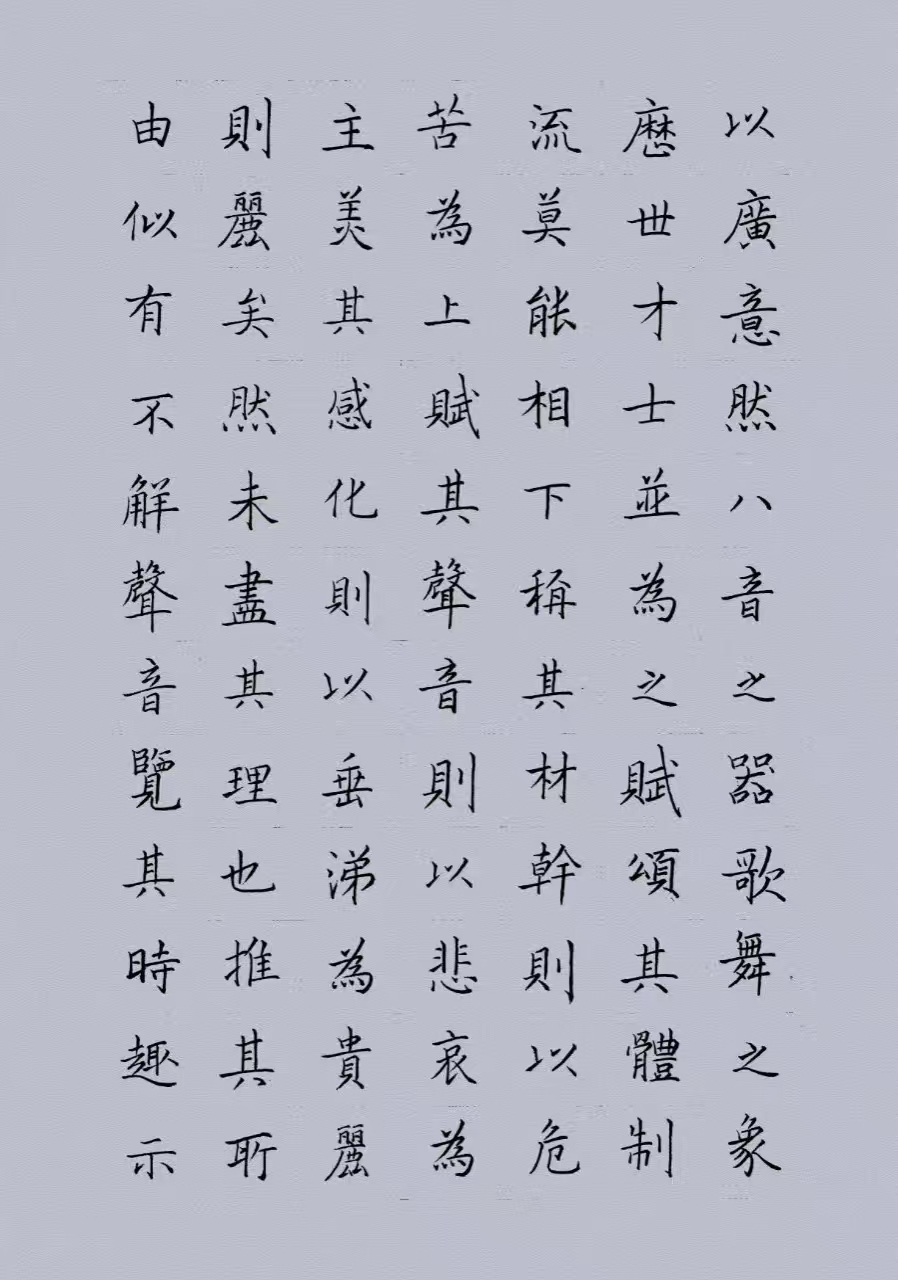 以廣意然八音之器歌舞之象
歷世才士並為之賦頌其體制
流莫能相下稱其材幹則以危
苦為上賦其聲音則以悲哀為
主美其感化則以垂涕為貴麗
則麗矣然未盡其理也推其所
由似有不解聲音覽其時趣示